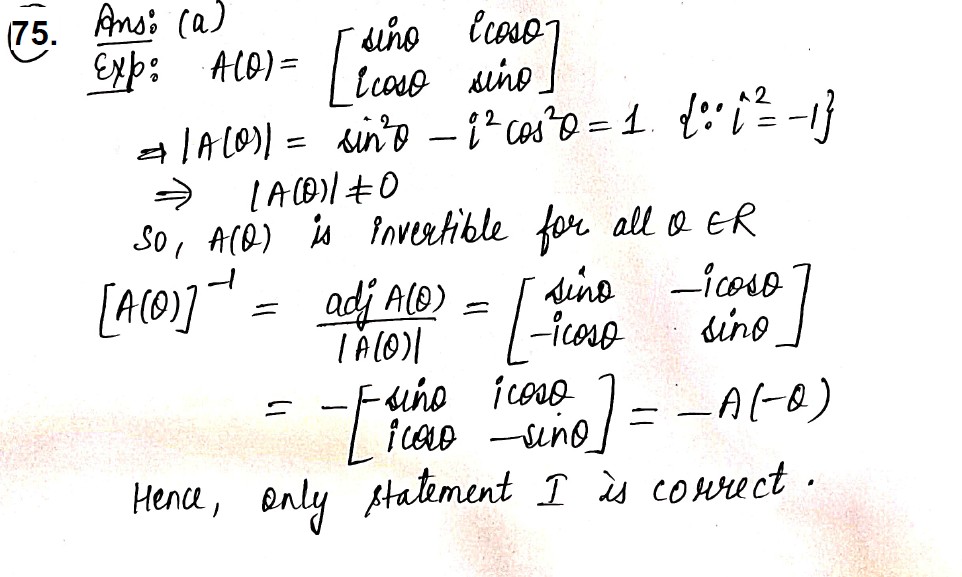 75. Ans: (a)
Exp: A(θ) = [ sinθ icosθ
icosθ sinθ ]
⇒ |A(θ)| = sin²θ – i² cos²θ = 1. {∵ i² = –1}
⇒ |A(θ)| ≠ 0
So, A(θ) is invertible for all θ ∈ R
[A(θ)]⁻¹ = adj A(θ) / |A(θ)| = [ sinθ –icosθ
–icosθ sinθ ]
= – [ –sinθ icosθ
icosθ –sinθ ] = – A(–θ)
Hence, only statement I is correct.